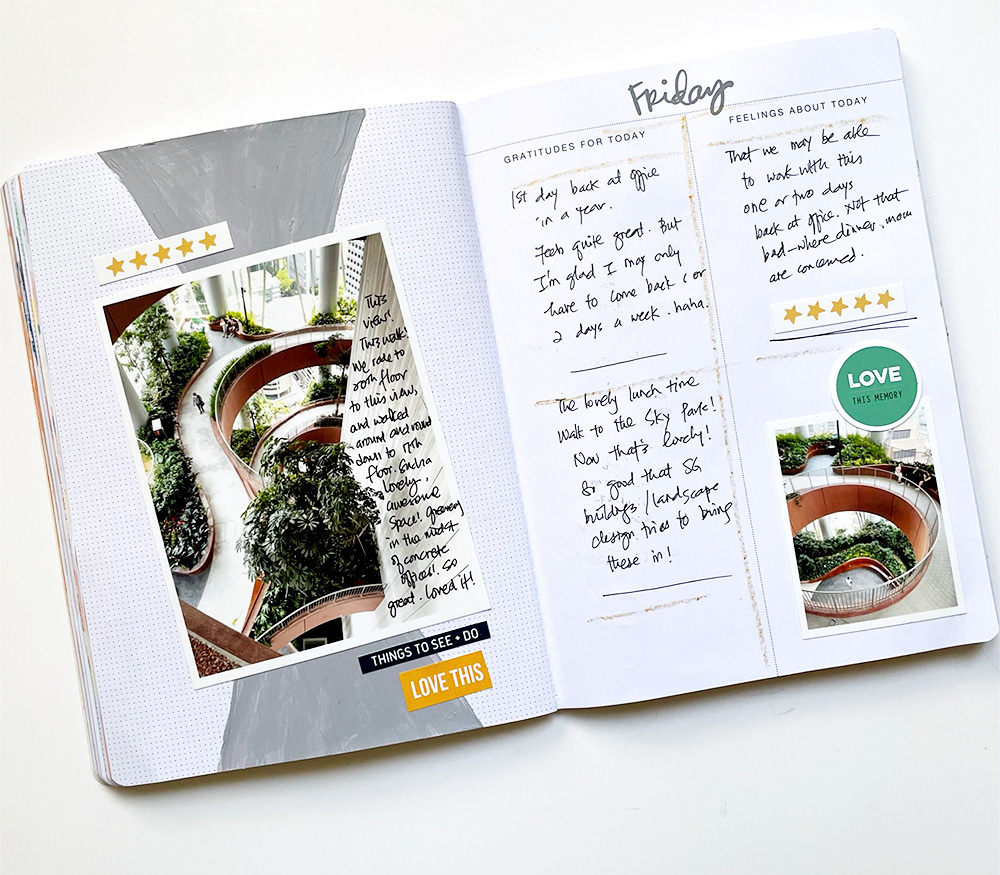 This
view!
This walk!
We rode to
20th floor
to this view,
and walked
around and round
down to 17th
floor. Such a
lovely,
awesome
space! Greenery
in the midst
of concrete
offices! So
great. Loved it!
THINGS TO SEE + DO
LOVE THIS
Friday
GRATITUDES FOR TODAY
1st day back at office
in a year.
Feels quite great. But
I'm glad I may only
have to come back 1 or
2 days a week. haha.
The lovely lunch time
walk to the Sky Park!
Now that's lovely!
So good that SG
buildings/landscape
design tries to bring
these in!
FEELINGS ABOUT TODAY
That we may be able
to work with this
one or two days
back at office. Not that
bad - where dinner, mom
are concerned.
LOVE
THIS MEMORY